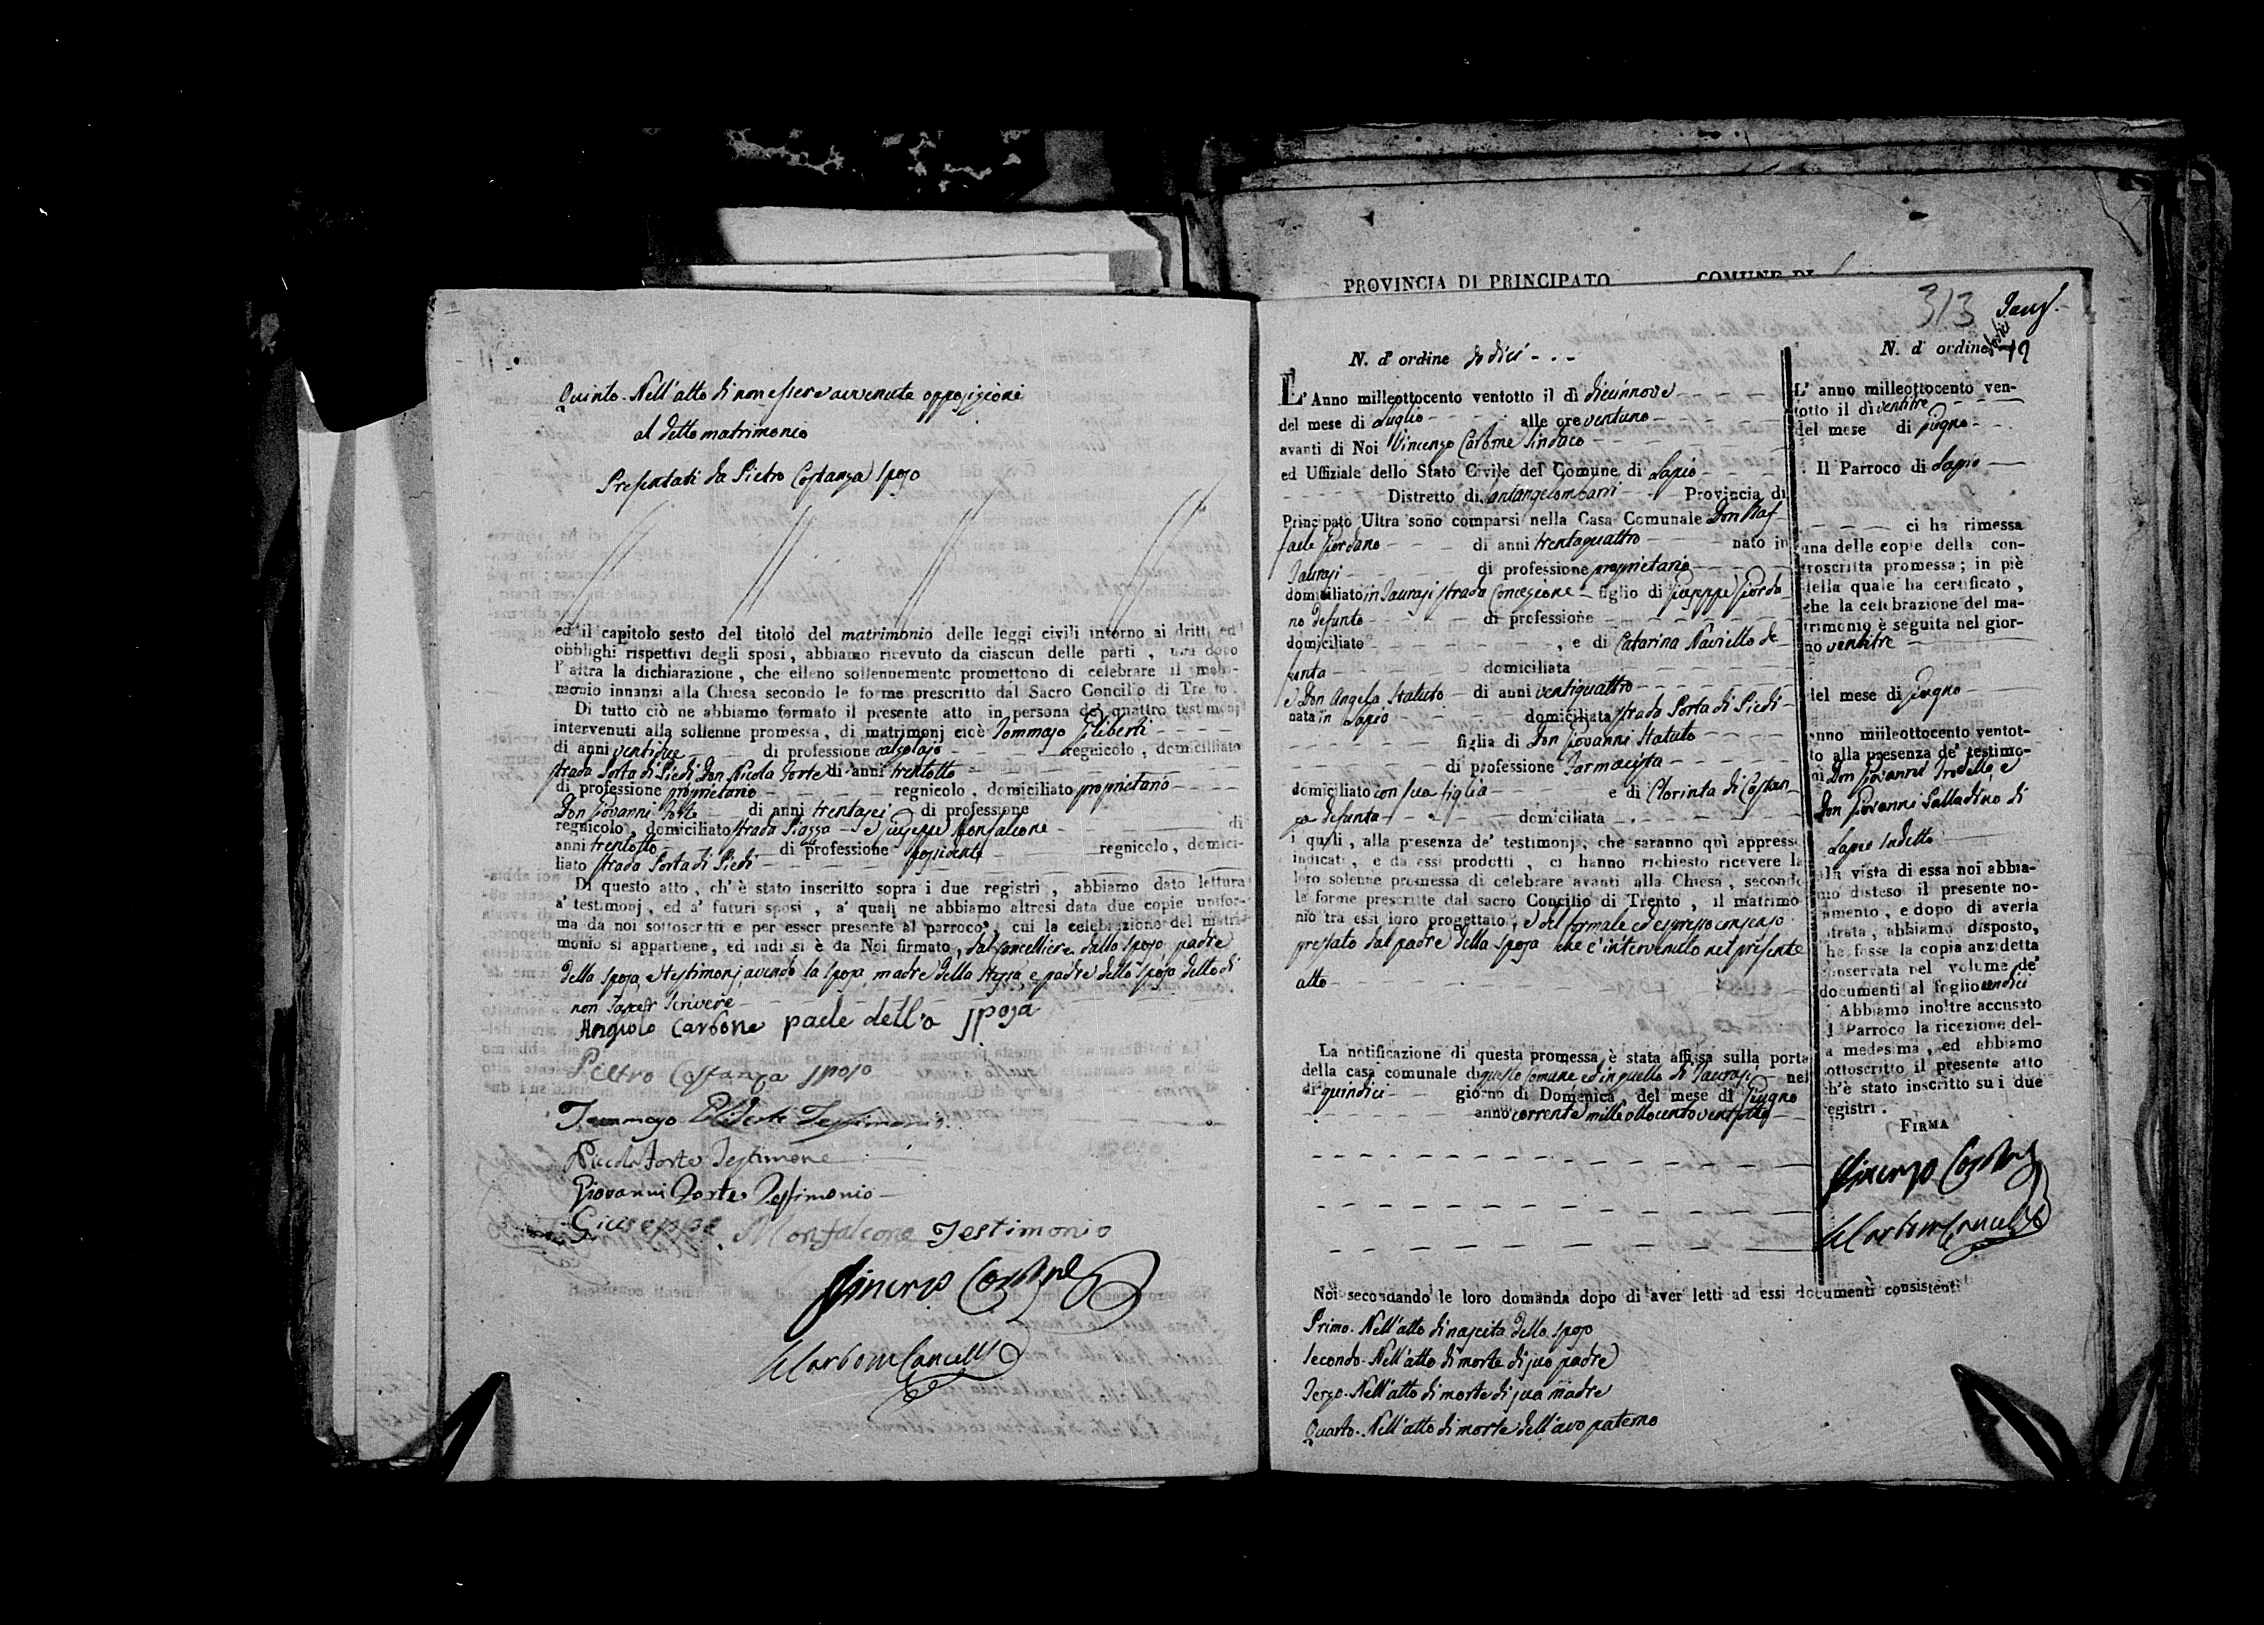 Quinto. Nell'atto di non essere avvenute opposizioni
al detto matrimonio
Presentati da Pietro Costanza sposo
ed il capitolo sesto del titolo del matrimonio delle leggi civili intorno ai dritti ed
obblighi rispettivi degli sposi, abbiamo ricevuto da ciascun delle parti, una dopo
l'altra la dichiarazione, che elleno sollennemente promettono di celebrare il matri-
monio innanzi alla Chiesa secondo le forme prescritto dal Sacro Concilio di Trento.
Di tutto ciò ne abbiamo formato il presente atto in persona de' quattro testimonj
intervenuti alla sollenne promessa, di matrimonj cioè Tommaso Gliberti
di anni ventidue di professione calzolajo regnicolo, domicilliato
strada Porta di Piedi Don Nicola Forte di anni trentotto
di professione proprietario regnicolo, domiciliato proprietario
Don Giovanni Forte di anni trentasei di professione
regnicolo, domiciliato strada Piazza e Giuseppe Monfalcone di
anni trentotto di professione possidente regnicolo, domici-
liato strada Porta di Piedi
Di questo atto, ch'è stato inscritto sopra i due registri, abbiamo dato lettura
a' testimonj, ed a' futuri sposi, a' quali ne abbiamo altresì data due copie unifor-
ma da noi sottoscritti e per esser presente al parroco, cui la celebrazione del matri-
monio si appartiene, ed indi si è da Noi firmato, dal Cancelliere dallo sposo padre
della sposa, e testimonj avendo la sposa, madre della stessa, e padre dello sposo detto di
non saper scrivere
Angiolo Carbone padre della sposa
Pietro Costanza sposo
Tommaso Gliberti Testimonio
Niccola Forte Testimone
Giovanni Forte Testimonio
Giuseppe Monfalcone Testimonio
Vincenzo Carbone
Carbone Cancell
PROVINCIA DI PRINCIPATO COMUNE DI
313 Tauras.
N. d'ordine dodici
L'Anno milleottocento ventotto il dì diciannove
del mese di Luglio alle ore ventuno
avanti di Noi Vincenzo Carbone Sindaco
ed Uffiziale dello Stato Civile del Comune di Lapio
Distretto di Santangelombardi Provincia di
Principato Ultra sono comparsi nella Casa Comunale Don Raf-
faele Giordano di anni trentaquattro nato in
Taurasi di professione proprietario
domiciliato in Taurasi strada Concezione figlio di Giuseppe Giorda-
no defunto di professione
domiciliato , e di Catarina Naviello de-
funta domiciliata
e Don Angela Statuto di anni ventiquattro
nata in Lapio domiciliata strada Porta di Piedi
figlia di Don Giovanni Statuto
di professione Farmacista
domiciliato con sua figlia e di Clorinta di Costan-
zo defunta domiciliata
i quali, alla presenza de' testimonj, che saranno quì appresso
indicati, e da essi prodotti, ci hanno richiesto ricevere la
loro solenne promessa di celebrare avanti alla Chiesa, secondo
le forme prescritte dal sacro Concilio di Trento, il matrimo-
nio tra essi loro progettato, e del formale ed espresso consenso
prestato dal padre della sposa che è intervenuto nel presente
atto
La notificazione di questa promessa è stata affissa sulla porta
della casa comunale di questo Comune ed in quello di Taurasi nel
dì quindici giorno di Domenica del mese di Giugno
anno corrente mille ottocento ventotto
Noi secondando le loro domanda dopo di aver letti ad essi documenti consistenti
Primo. Nell'atto di nascita dello sposo
Secondo. Nell'atto di morte di suo padre
Terzo. Nell'atto di morte di sua madre
Quarto. Nell'atto di morte dell'avo paterno
N. d'ordine dodici 12
L'anno milleottocento ven-
totto il dì ventitre
del mese di Giugno
Il Parroco di Lapio
ci ha rimessa
una delle copie della con-
troscritta promessa; in piè
della quale ha certificato,
che la celebrazione del ma-
trimonio è seguita nel gior-
no ventitre
del mese di Giugno
anno milleottocento ventot-
to alla presenza de' testimo-
nj Don Giovanni e
Don Giovanni Palladino di
Lapio
Alla vista di essa noi abbia-
mo disteso il presente no-
tamento, e dopo di averla
cifrata, abbiamo disposto,
che fosse la copia anzidetta
conservata nel volume de'
documenti al foglio
Abbiamo inoltre accusato
al Parroco la ricezione del-
la medesima, ed abbiamo
sottoscritto il presente atto
ch'è stato inscritto su i due
registri.
FIRMA
Vincenzo Carbone
Carbone Cancell